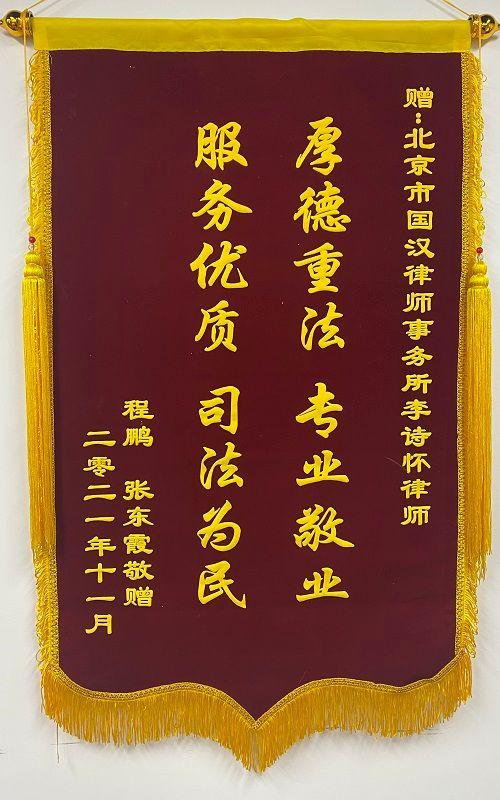 赠:北京市国汉律师事务所李诗怀律师
厚德重法 专业敬业
服务优质 司法为民
程鹏 张东霞敬赠
二零二一年十一月